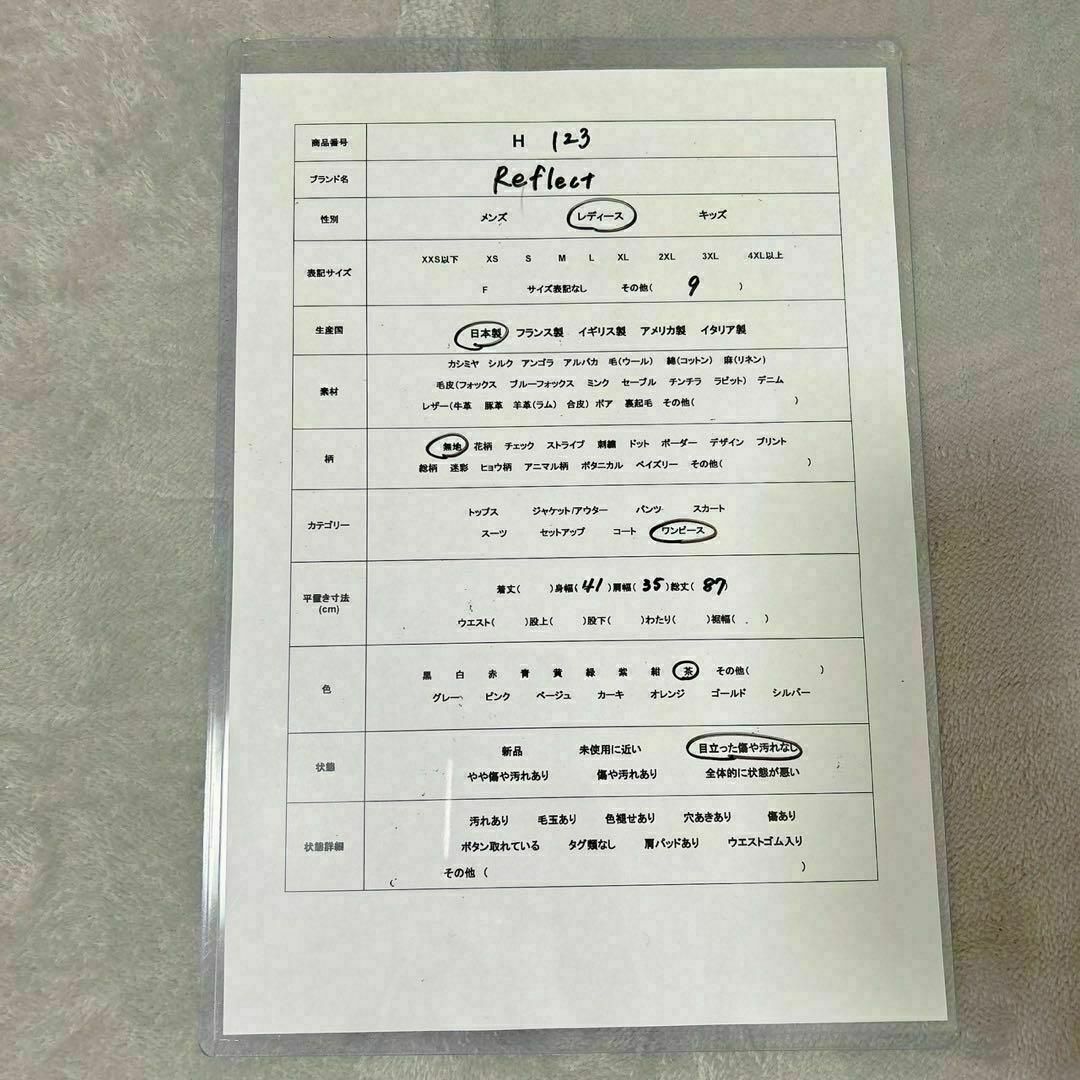 商品番号 H 123
ブランド名 Reflect
性別 メンズ レディース キッズ
表記サイズ
XXS以下 XS S M L XL 2XL 3XL 4XL以上
F サイズ表記なし その他( 9 )
生産国 日本製 フランス製 イギリス製 アメリカ製 イタリア製
素材
カシミヤ シルク アンゴラ アルパカ 毛(ウール) 綿(コットン) 麻(リネン)
毛皮(フォックス ブルーフォックス ミンク セーブル チンチラ ラビット) デニム
レザー(牛革 豚革 羊革(ラム) 合皮) ボア 裏起毛 その他( )
柄
無地 花柄 チェック ストライプ 刺繍 ドット ボーダー デザイン プリント
総柄 迷彩 ヒョウ柄 アニマル柄 ボタニカル ペイズリー その他( )
カテゴリー
トップス ジャケット/アウター パンツ スカート
スーツ セットアップ コート ワンピース
平置き寸法
(cm)
着丈( )身幅( 41 )肩幅( 35 )総丈( 87 )
ウエスト( )股上( )股下( )わたり( )裾幅( )
色
黒 白 赤 青 黄 緑 紫 紺 茶 その他( )
グレー ピンク ベージュ カーキ オレンジ ゴールド シルバー
状態
新品 未使用に近い 目立った傷や汚れなし
やや傷や汚れあり 傷や汚れあり 全体的に状態が悪い
状態詳細
汚れあり 毛玉あり 色褪せあり 穴あきあり 傷あり
ボタン取れている タグ類なし 肩パッドあり ウエストゴム入り
その他 ( )